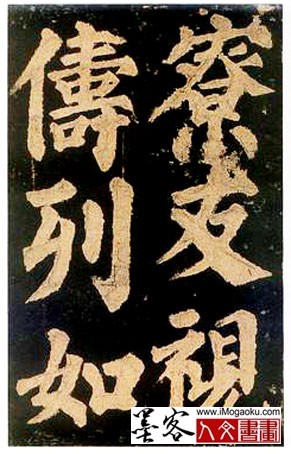 寮友視
儔列如
墨客
www.iMogaoku.com
人文書畫